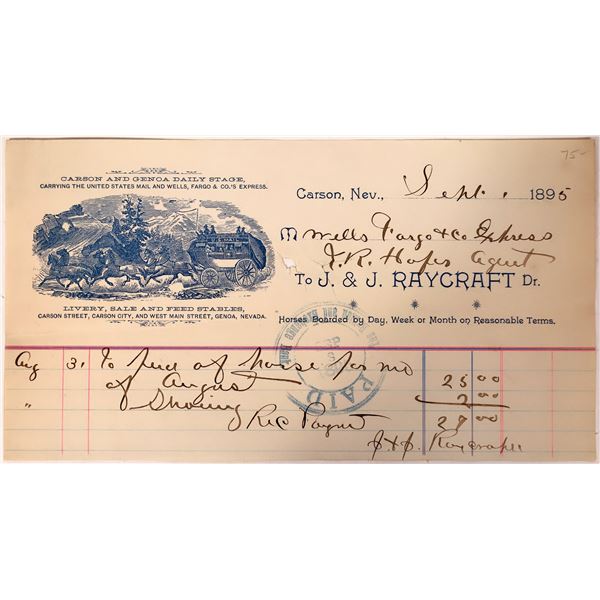 75-
CARSON AND GENOA DAILY STAGE,
CARRYING THE UNITED STATES MAIL AND WELLS, FARGO & CO.'S EXPRESS.
LIVERY, SALE AND FEED STABLES,
CARSON STREET, CARSON CITY, AND WEST MAIN STREET, GENOA, NEVADA.
Carson, Nev., Sept. 1895
M Wells Fargo & Co Express
Agent
To J. & J. RAYCRAFT Dr.
Horses Boarded by Day, Week or Month on Reasonable Terms.
PAID
Aug 31 To feed of horse for mo
of August 25 00
" Shoing 2 00
Rec Paymt 27 00
J. & J. Raycraft